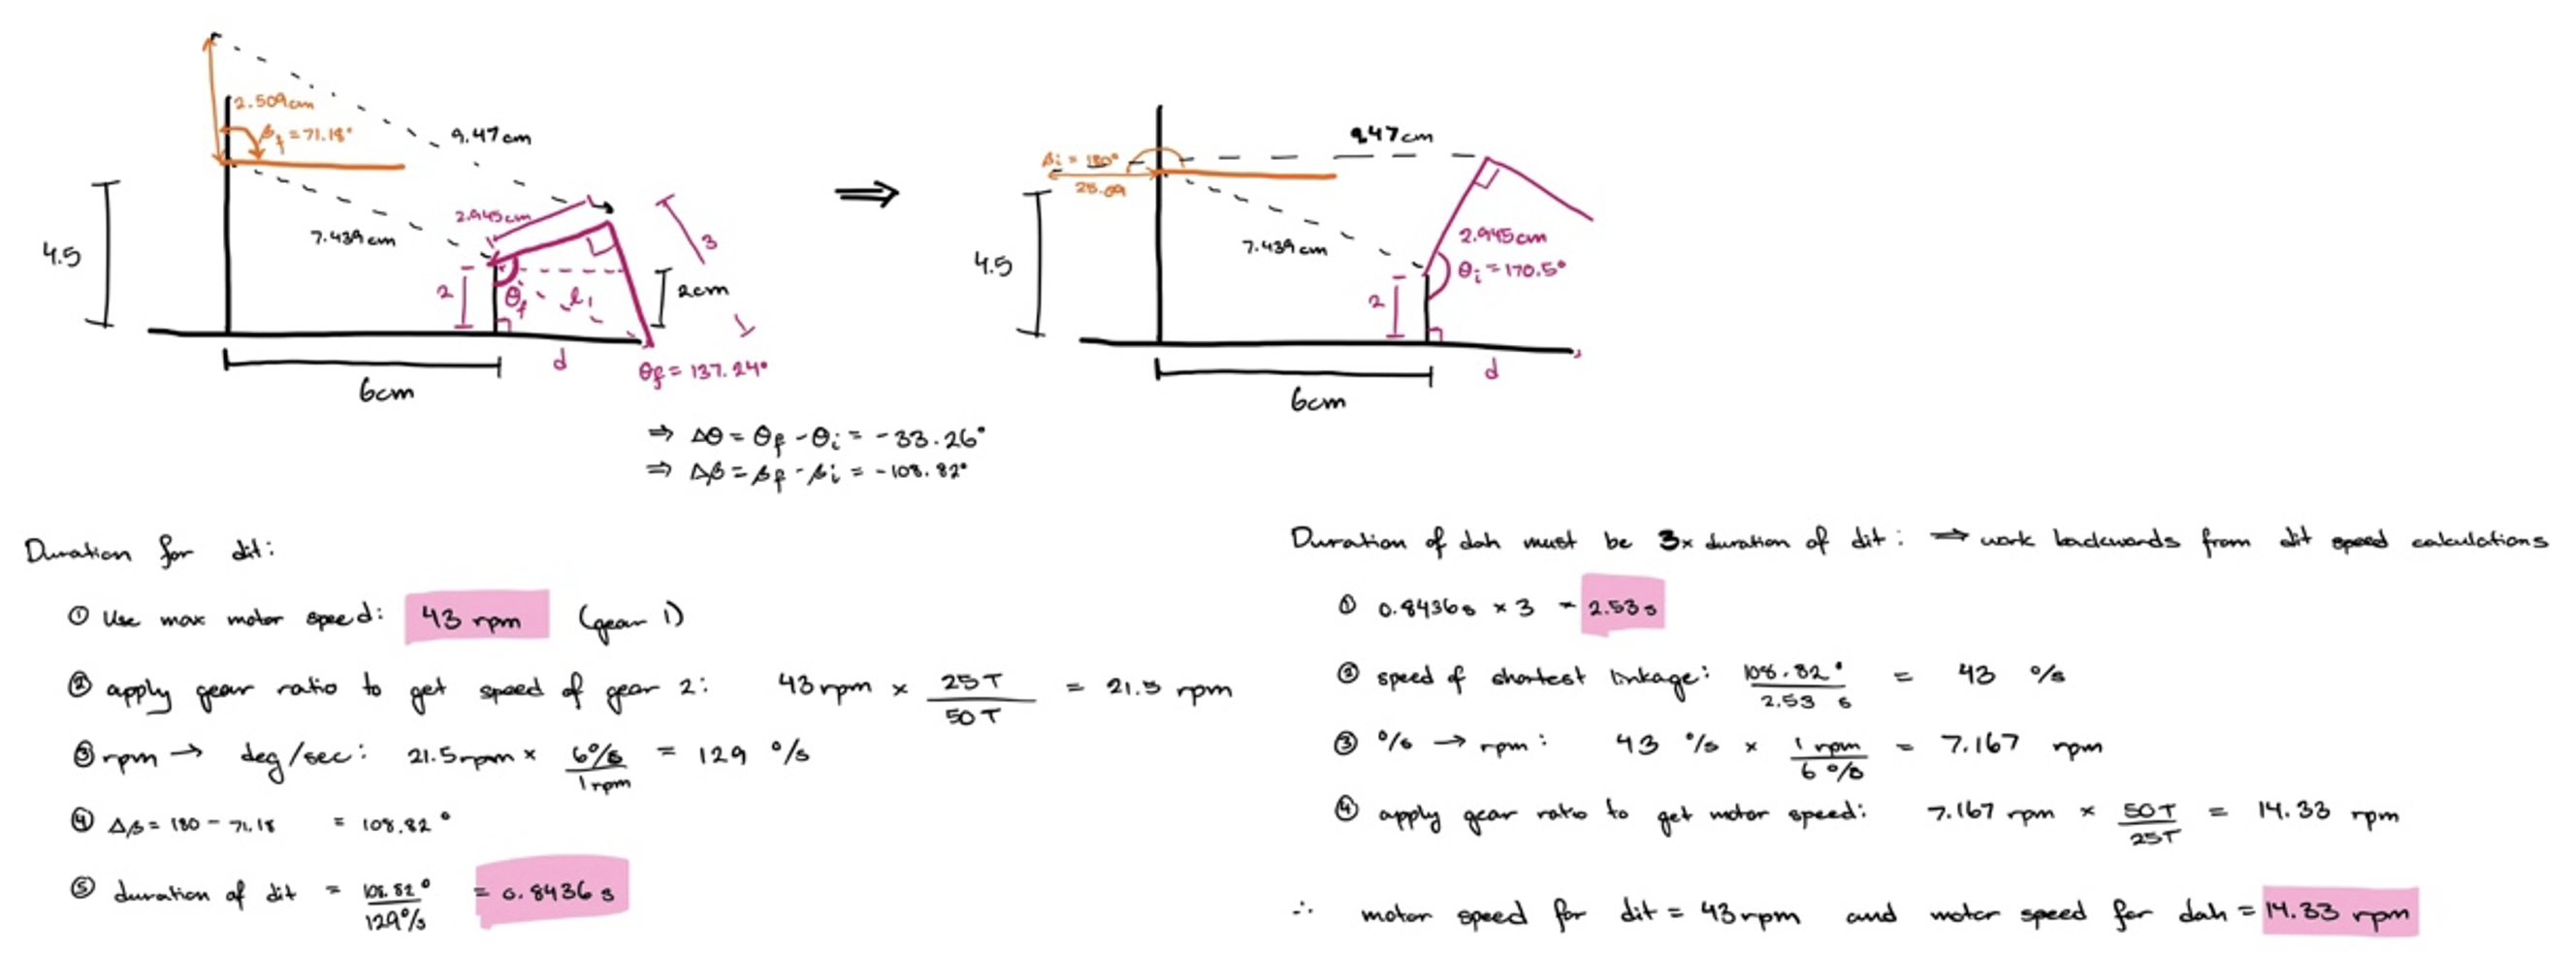 2.509cm
βf = 71.18°
9.47cm
2.945cm
7.439cm
3
4.5
2
θf
l1
2cm
d
6cm
θf = 137.24°
βi = 180°
25.09
947cm
4.5
7.439cm
2.945cm
θi = 170.5°
2
d
6cm
⇒ Δθ = θf - θi = -33.26°
⇒ Δβ = βf - βi = -108.82°
Duration for dit:
① Use max motor speed: 43 rpm (gear 1)
② apply gear ratio to get speed of gear 2: 43 rpm × 25T / 50T = 21.5 rpm
③ rpm → deg/sec: 21.5rpm × 6°/s / 1rpm = 129 °/s
④ Δβ = 180 - 71.18 = 108.82°
⑤ duration of dit = 108.82° / 129°/s = 0.8436 s
Duration of dah must be 3x duration of dit: ⇒ work backwards from dit speed calculations
① 0.8436s × 3 = 2.53 s
② speed of shortest linkage: 108.82° / 2.53 s = 43 °/s
③ °/s → rpm: 43 °/s × 1 rpm / 6 °/s = 7.167 rpm
④ apply gear ratio to get motor speed: 7.167 rpm × 50T / 25T = 14.33 rpm
∴ motor speed for dit = 43rpm and motor speed for dah = 14.33 rpm